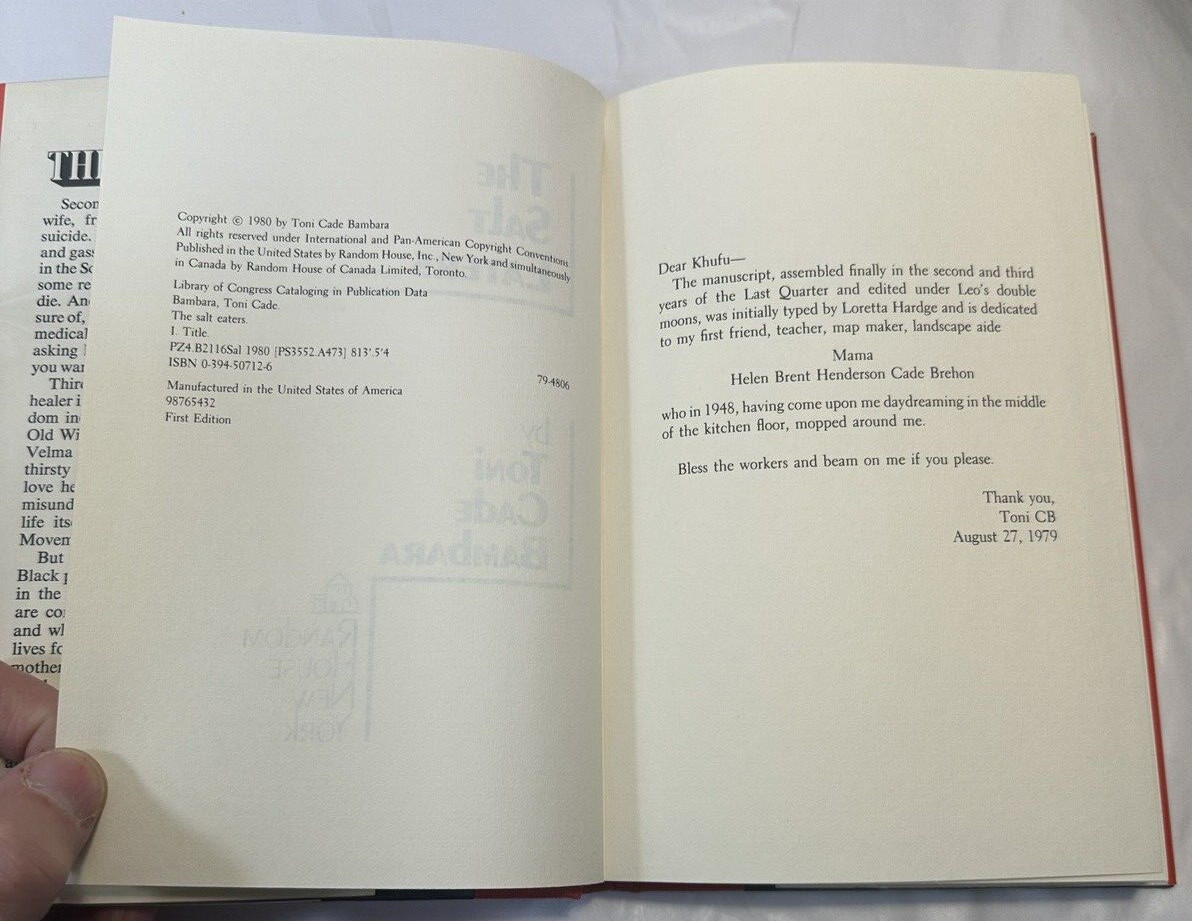 TH
Secon
wife, fr
suicide.
and gas
in the So
some re
die. An
sure of,
medical
asking
you wan
Third
healer i
dom in
Old Wi
Velma
thirsty
love he
misund
life its
Movem
But
Black p
in the
are co
and wh
lives fo
mother
Copyright © 1980 by Toni Cade Bambara
All rights reserved under International and Pan-American Copyright Conventions.
Published in the United States by Random House, Inc., New York and simultaneously
in Canada by Random House of Canada Limited, Toronto.
Library of Congress Cataloging in Publication Data
Bambara, Toni Cade.
The salt eaters.
I. Title.
PZ4.B2116Sal 1980 [PS3552.A473] 813'.5'4
ISBN 0-394-50712-6
79-4806
Manufactured in the United States of America
98765432
First Edition
The
Salt
by
Toni
Cade
Bambara
Random
House
New
York
Dear Khufu—
The manuscript, assembled finally in the second and third
years of the Last Quarter and edited under Leo's double
moons, was initially typed by Loretta Hardge and is dedicated
to my first friend, teacher, map maker, landscape aide
Mama
Helen Brent Henderson Cade Brehon
who in 1948, having come upon me daydreaming in the middle
of the kitchen floor, mopped around me.
Bless the workers and beam on me if you please.
Thank you,
Toni CB
August 27, 1979